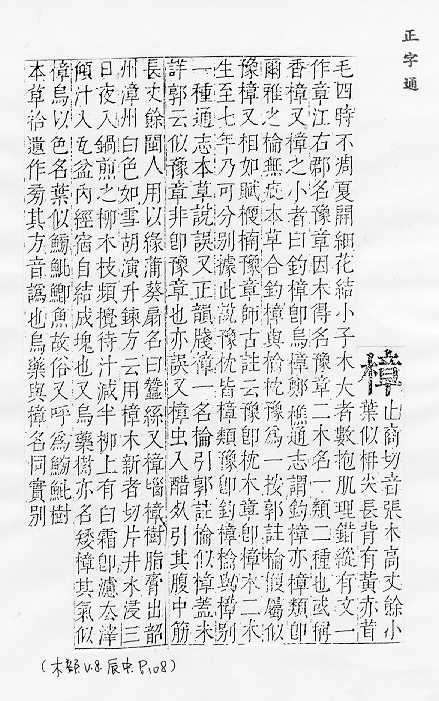 正字通
樟 止商切音張木高丈餘小
葉似枏尖長背有黃赤茸
毛四時不凋夏開細花結小子木大者數抱肌理錯縱有文一
作章江右郡名豫章因木得名豫章二木名一類二種也或稱
香樟又樟之小者曰釣樟卽烏樟鄭樵通志謂釣樟亦樟類卽
爾雅之棆無疵本草合釣樟與棆枕豫爲一按郭註棆偃屬似
豫樟又相如賦楩楠豫章師古註云豫卽枕木章卽樟木二木
生至七年乃可分別據此說豫枕皆樟類豫卽釣樟棆與樟別
一種通志本草說誤又正韻牋樟一名棆引郭註棆似樟蓋未
詳郭云似豫章非卽豫章也亦誤又樟虫入醋引其腹中筋
長丈餘閩人用以緣蒲葵扇名曰蠶絲又樟腦樟樹脂膏出韶
州漳州白色如雪胡演升鍊方云用樟木新者切片井水浸三
日夜入鍋煎之柳木枝頻攪待汁減半柳上有白霜卽濾去滓
傾汁入瓦盆內經宿自結成塊也又烏藥樹亦名矮樟其氣似
樟烏以色名葉似鰟魮鯽魚故俗又呼爲鰟魮樹
本草拾遺作旁其方音譌也烏藥與樟名同實別
(木類V.8.辰中.P.108)